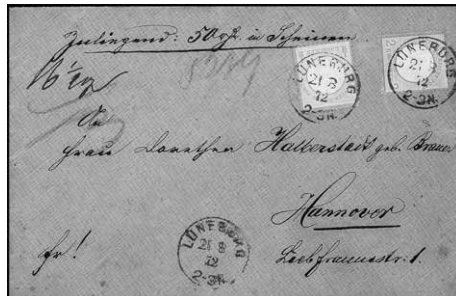 Inliegend: 50 rf. in Scheinen.
LÜNEBURG
21 8
72
2-3N.
LÜNEBURG
21 8
72
2-3N.
5219
An
Frau Dorothea Halberstadt geb. Brauer
Hannover
Liebfrauenstr. 1.
fr!
LÜNEBURG
21 8
72
2-3N.